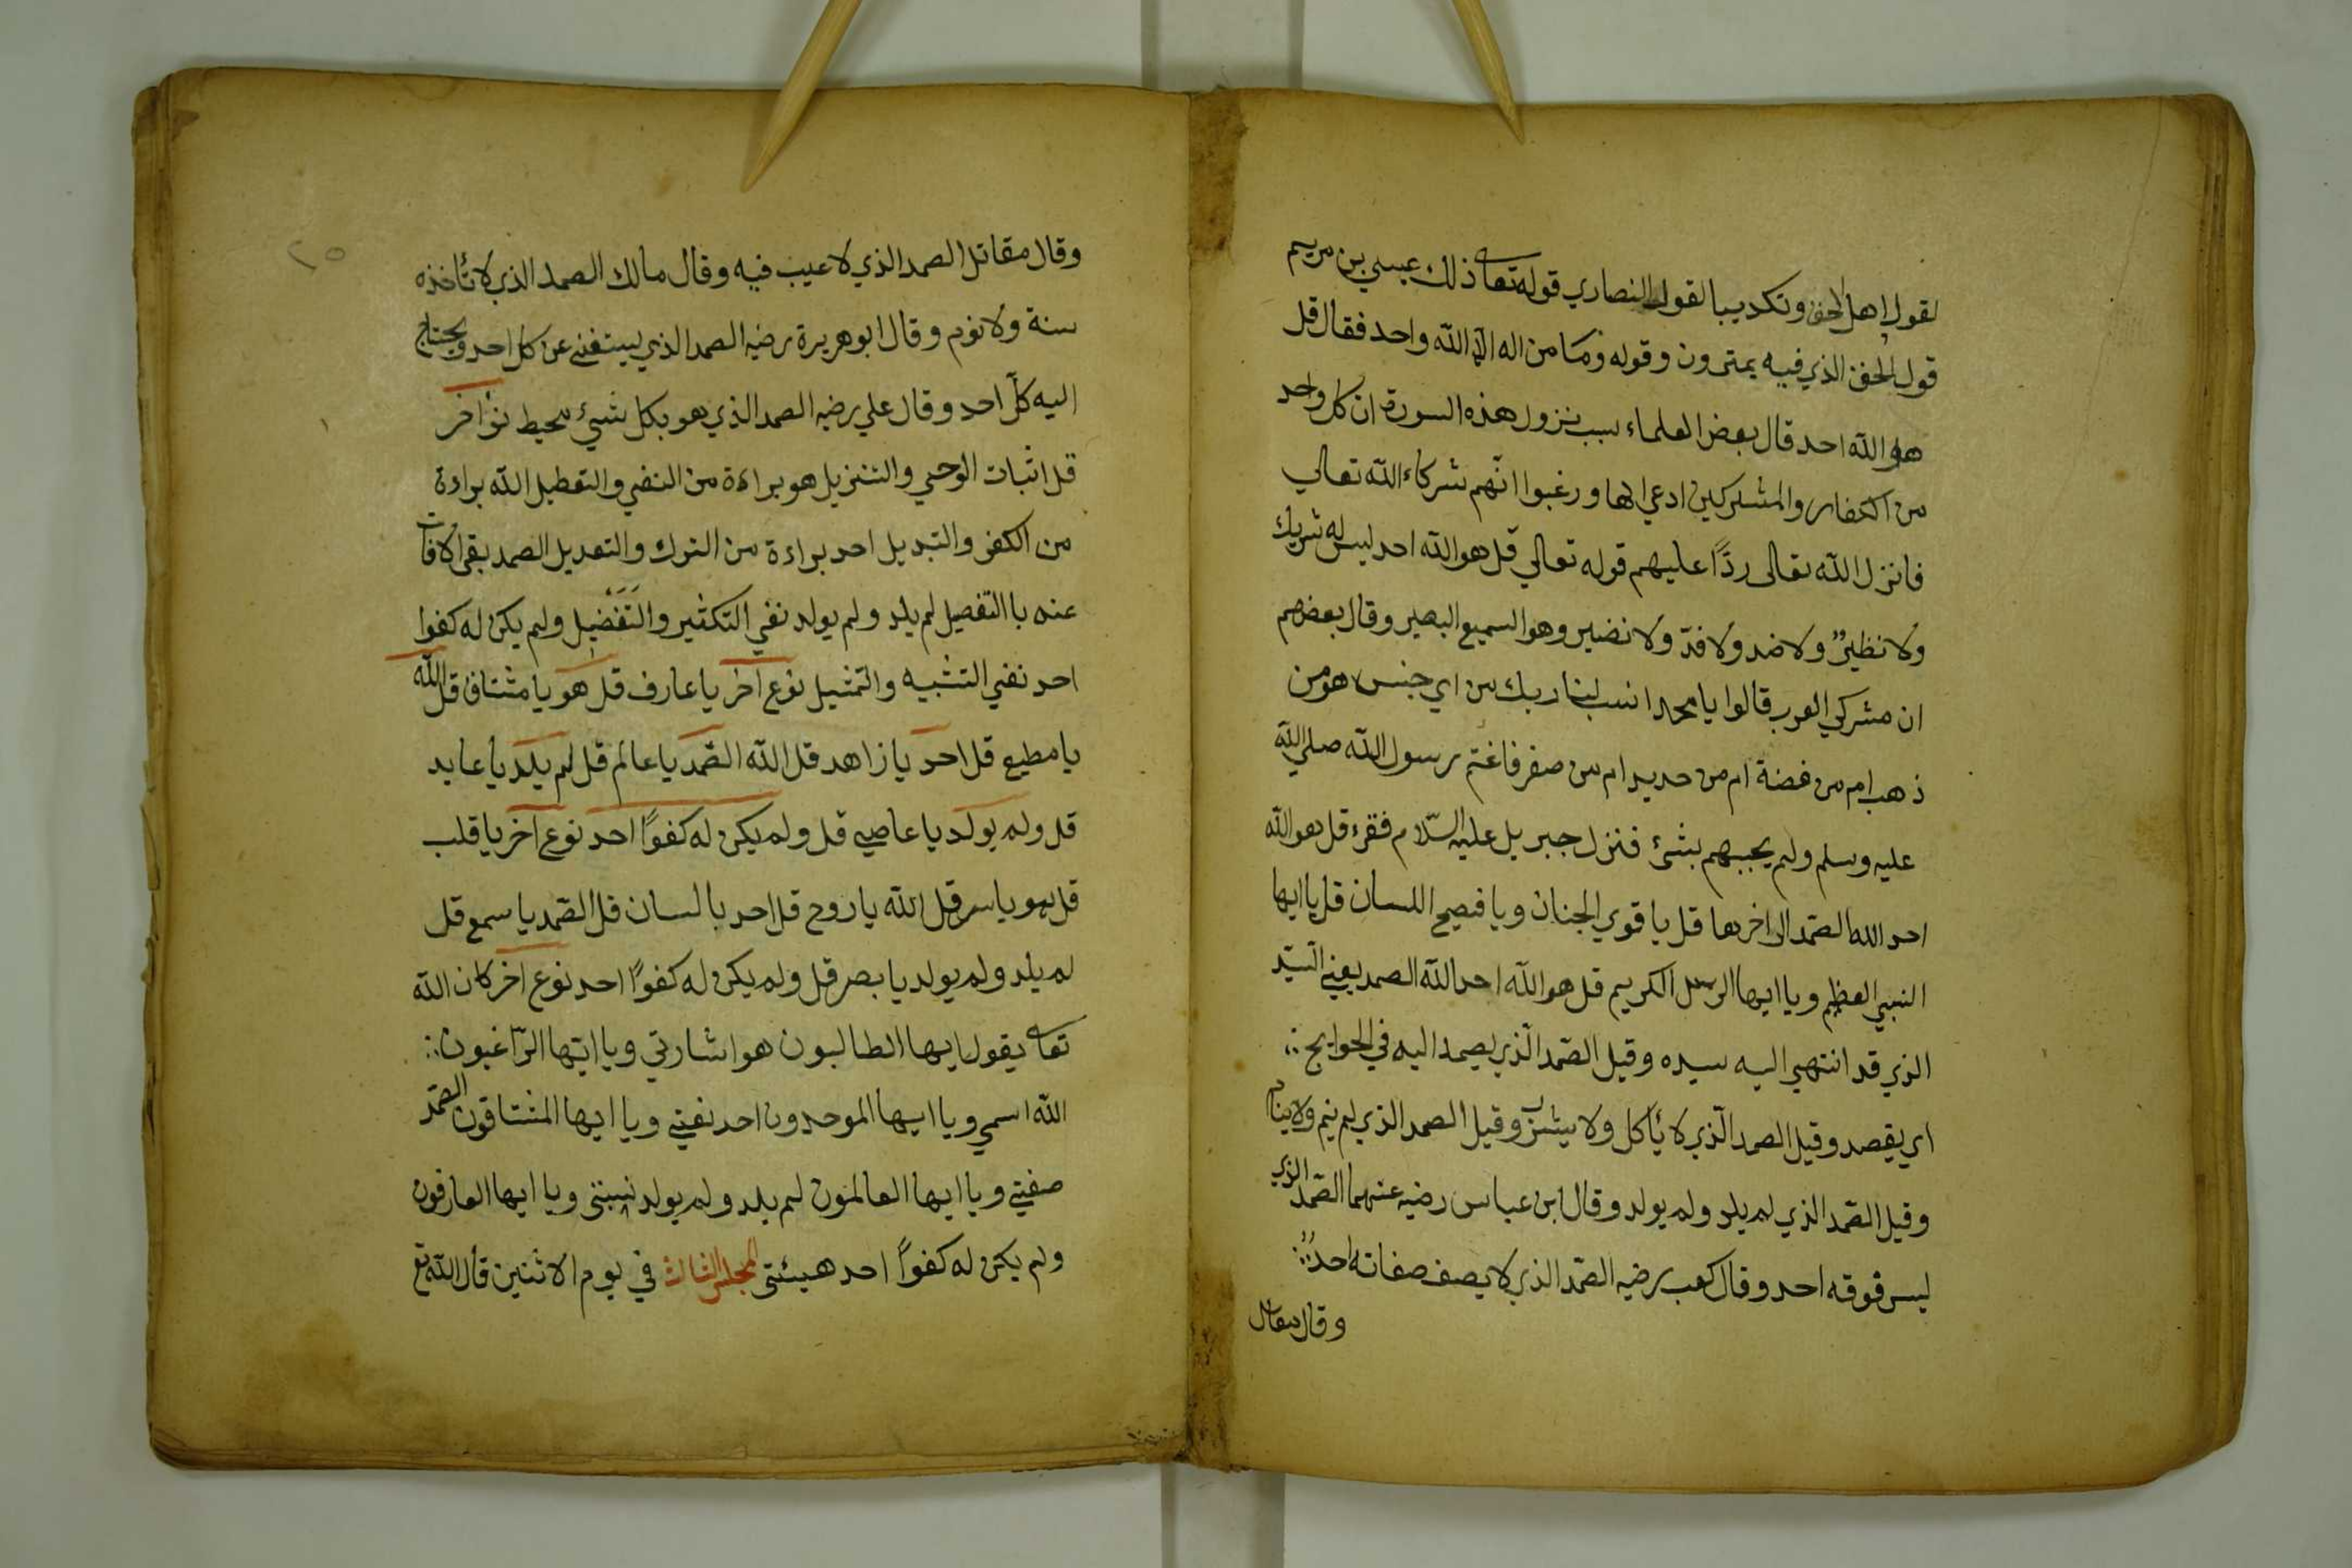 لقول اهل الحق وتكديبا لقول النصاري قوله تعا ذلك عيسي بن مريم
قول الحق الذي فيه يمترون وقوله وما من اله الا الله واحد فقال قل
هو الله احد قال بعض العلماء سبب نزول هذه السورة ان كل واحد
من الكفار والمشركين ادعي الها ورغبوا انّهم شركاء الله تعالي
فانزل الله تعالى ردًّا عليهم قوله تعالي قل هو الله احد ليس له شريك
ولا نظيرٌ ولا ضد ولا فدّ ولا نضير وهو السميع البصير وقال بعضهم
ان مشركي العرب قالوا يا محمد انسب لينا ربك من اي جنس هو من
ذهب ام من فضة ام من حديد ام من صفر فاغتم رسول الله صلي الله
عليه وسلم ولم يجبهم بشئ فنزل جبريل عليه السّلام فقرء قل هو الله
احد الله الصّمد الى اخرها قل يا قوي الجنان ويا فصيح اللسان قل يا ايها
النبي العظيم ويا ايها الرسل الكريم قل هو الله احد الله الصمد يعني السّيّد
الذي قد انتهي اليه سيده وقيل الصّمد الّذي يصمد اليه في الحوايج
اي يقصد وقيل الصمد الّذي لا يأكل ولا يشرب وقيل الصمد الذي لم ينم ولا ينام
وقيل الصّمد الذي لم يلد ولم يولد وقال ابن عباس رضيه عنهما الصّمد الذي
ليس فوقه احد وقال كعب رضيه الصّمد الذي لا يصف صفاته احدٌ
وقال مقاتل
٢٥
وقال مقاتل الصمد الذي لا عيب فيه وقال مالك الصمد الذي لا تأخذه
سنة ولا نوم وقال ابو هريرة رضيه الصمد الذي يستغني عن كل احد ويحتاج
اليه كلّ احد وقال علي رضيه الصمد الذي هو بكل شيئ محيط نوع آخر
قل اثبات الوحي والتنزيل هو براءة من النفي والتعطيل الله براءة
من الكفر والتبديل احد براءة من الترك والتعديل الصمد بقي الافات
عنه باالتفصيل لم يلد ولم يولد نفي التكثير والتَفَضيل ولم يكن له كفوا
احد نفي التشبيه والتمثيل نوع اخر يا عارف قل هو يا مشتاق قل الله
يا مطيع قل احد يا زاهد قل الله الصّمد يا عالم قل لم يلد يا عابد
قل ولم يولد يا عاصي قل ولم يكن له كفوًا احد نوع اخر يا قلب
قل هو يا سر قل الله يا روح قل احد يا لسان قل الصّمد يا سمع قل
لم يلد ولم يولد يا بصر قل ولم يكن له كفوًا احد نوع اخر كان الله
تعا يقول ايها الطالبون هو اشارتي ويا ايّها الرّاغبون
الله اسمي ويا ايها الموحدون احد نعتي ويا ايها المشتاقون الصّمد
صفتي ويا ايها العالمون لم يلد ولم يولد نسبتي ويا ايها العارفون
ولم يكن له كفوًا احد هيئتي المجلس الثالث في يوم الاثنين قال الله تع